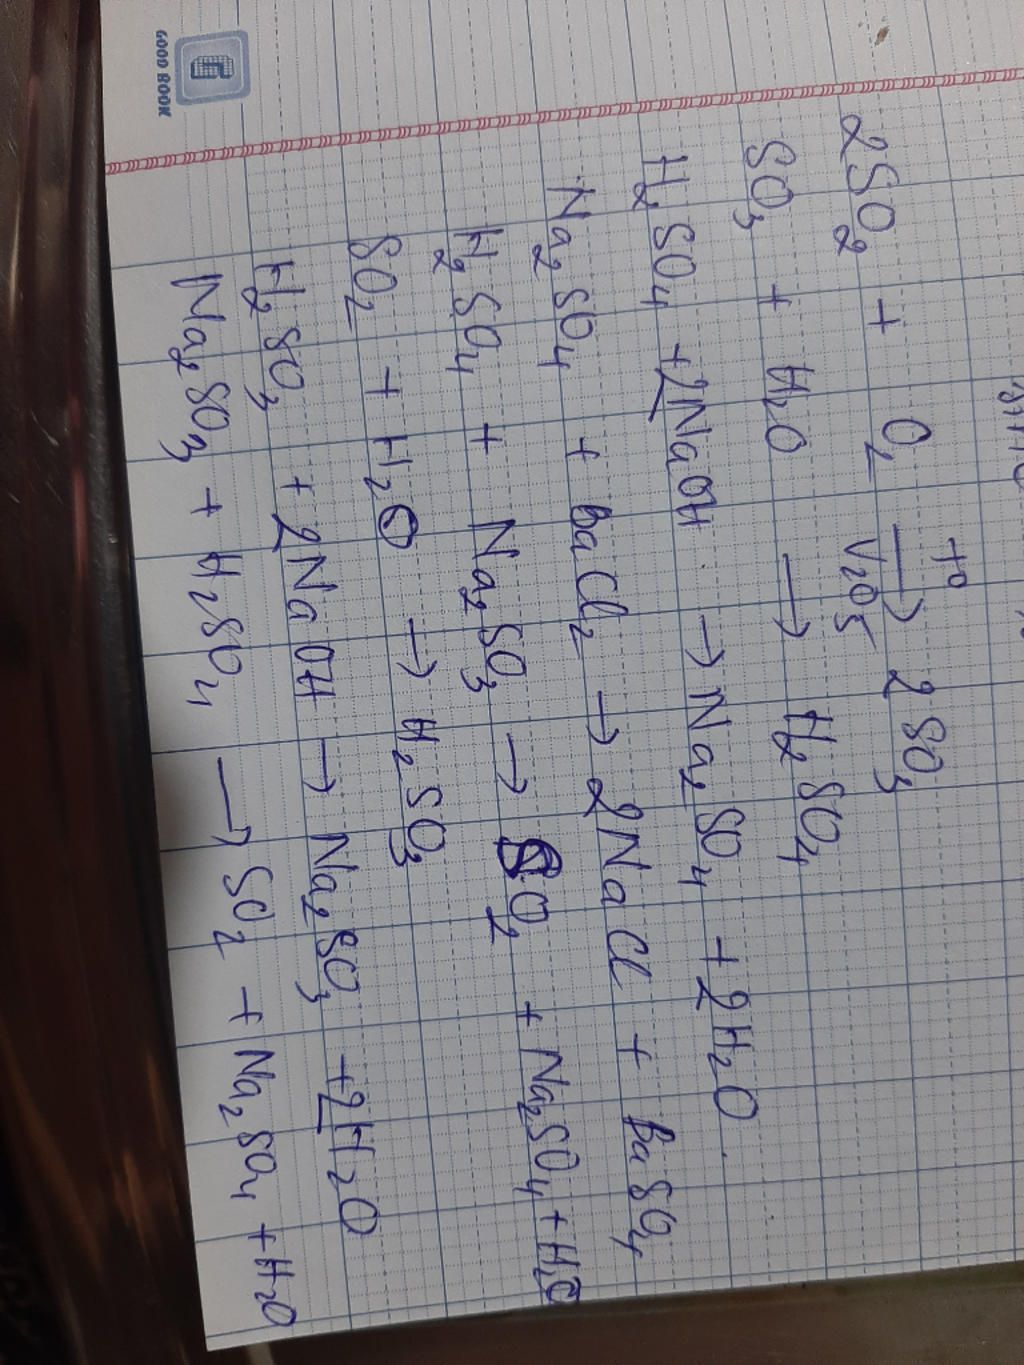 2SO₂ + O₂ →(t°, V₂O₅) 2SO₃
SO₃ + H₂O → H₂SO₄
H₂SO₄ + 2NaOH → Na₂SO₄ + 2H₂O
Na₂SO₄ + BaCl₂ → 2NaCl + BaSO₄
H₂SO₄ + Na₂SO₃ → SO₂ + Na₂SO₄ + H₂O
SO₂ + H₂O → H₂SO₃
H₂SO₃ + 2NaOH → Na₂SO₃ + 2H₂O
Na₂SO₃ + H₂SO₄ → SO₂ + Na₂SO₄ + H₂O
GOOD BOOK